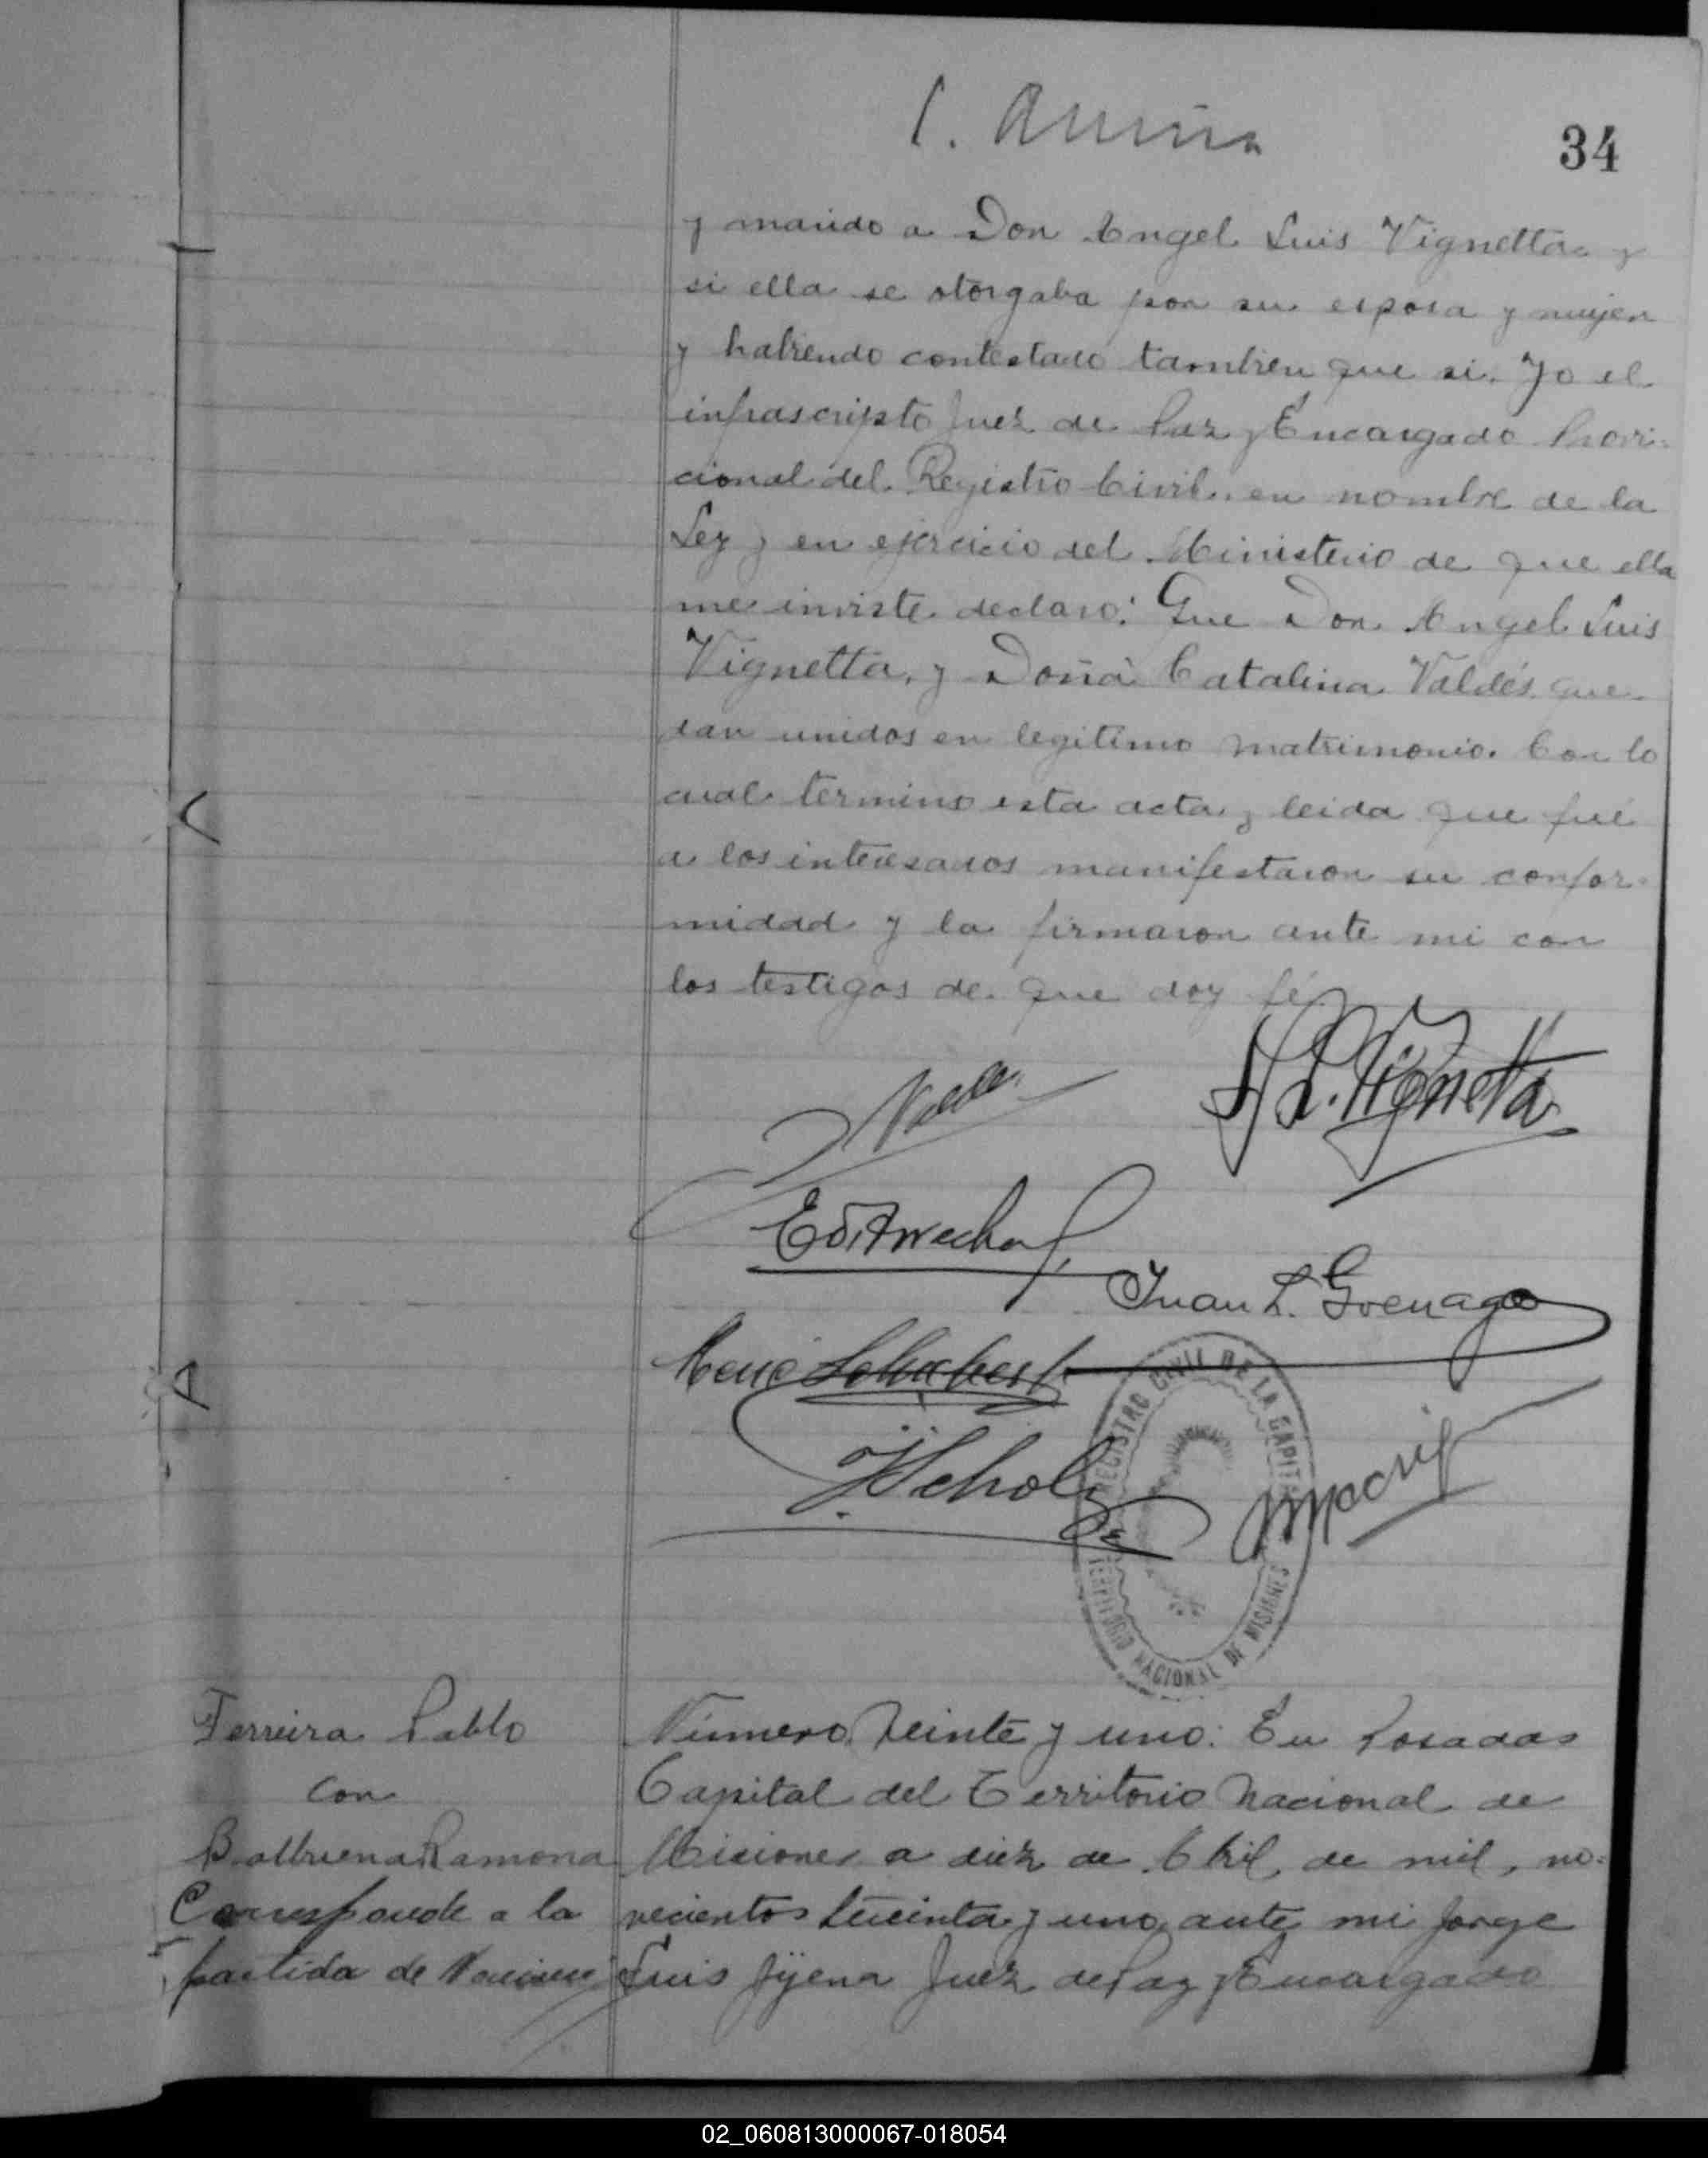 34
y marido a Don Angel Luis Vignetta y
si ella se otorgaba por su esposa y mujer
y habiendo contestado tambien que si. Yo el
infrascripto Juez de Paz y Encargado Provi-
cional del Registro Civil, en nombre de la
Ley y en ejercicio del Ministerio de que ella
me inviste declaro: Que Don Angel Luis
Vignetta, y Doña Catalina Valdés que-
dan unidos en legitimo matrimonio. Con lo
cual termino esta acta y leida que fué
a los interesados manifestaron su confor-
midad y la firmaron ante mi con
los testigos de que doy fé
A L. Vignetta
Juan L. Goenaga
REGISTRO CIVIL DE LA CAPITAL
TERRITORIO NACIONAL DE MISIONES
Ferreira Pablo
con
Balbuena Ramona
Corresponde a la
partida de
Número Veinte y uno: En Posadas
Capital del Territorio Nacional de
Misiones a diez de Abril de mil, no-
vecientos treinta y uno, ante mi Jorge
Luis Juez de Paz y Encargado
02_060813000067-018054